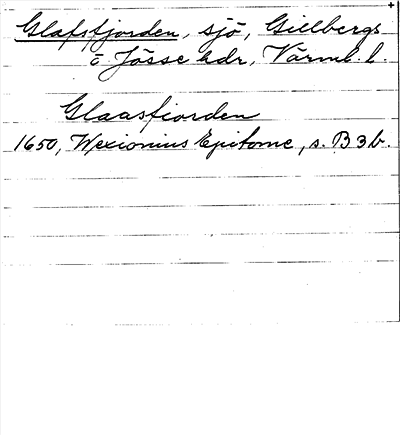 Glafsfjorden, sjö, Gillbergs
o. Jösse hdr, Värml. l.
Glaasfiorden
1650, Wexionius Epitome, s. B3b.